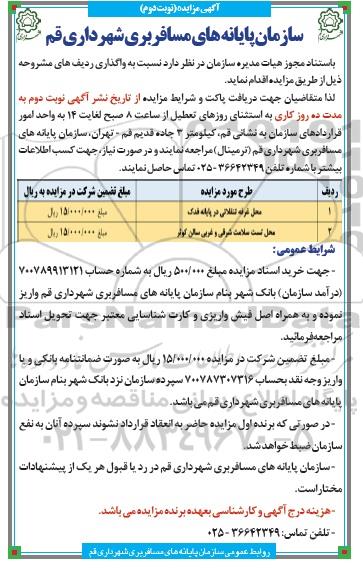 آگهی مزایده (نوبت دوم)
سازمان پایانه های مسافربری شهرداری قم
باستناد مجوز هیات مدیره سازمان در نظر دارد نسبت به واگذاری ردیف های مشروحه
ذیل از طریق مزایده اقدام نماید.
لذا متقاضیان جهت دریافت پاکت و شرایط مزایده از تاریخ نشر آگهی نوبت دوم به
مدت ده روز کاری به استثنای روزهای تعطیل از ساعت ۸ صبح لغایت ۱۴ به واحد امور
قراردادهای سازمان به نشانی قم، کیلومتر ۳ جاده قدیم قم - تهران، سازمان پایانه های
مسافربری شهرداری قم (ترمینال) مراجعه نمایند و در صورت نیاز، جهت کسب اطلاعات
بیشتر با شماره تلفن ۳۶۶۴۲۳۴۹-۰۲۵ تماس حاصل نمایند.
ردیف طرح مورد مزایده مبلغ تضمین شرکت در مزایده به ریال
۱ محل غرفه تنقلاتی در پایانه فدک ۱۵/۰۰۰/۰۰۰ ریال
۲ محل تست سلامت شرقی و غربی سالن کوثر ۱۵/۰۰۰/۰۰۰ ریال
شرایط عمومی:
- جهت خرید اسناد مزایده مبلغ ۵۰۰/۰۰۰ ریال به شماره حساب ۷۰۰۷۸۹۹۱۳۱۲۱
(درآمد سازمان) بانک شهر بنام سازمان پایانه های مسافربری شهرداری قم واریز
نموده و به همراه اصل فیش واریزی و کارت شناسایی معتبر جهت تحویل اسناد
مراجعه فرمائید.
- مبلغ تضمین شرکت در مزایده ۱۵/۰۰۰/۰۰۰ ریال به صورت ضمانتنامه بانکی و یا
واریز وجه نقد بحساب ۷۰۰۷۸۷۳۰۷۳۱۶ سپرده سازمان نزد بانک شهر بنام سازمان
پایانه های مسافربری شهرداری قم می باشد.
- در صورتی که برنده اول مزایده حاضر به انعقاد قرارداد نشوند سپرده آنان به نفع
سازمان ضبط خواهد شد.
- سازمان پایانه های مسافربری شهرداری قم در رد یا قبول هر یک از پیشنهادات
مختار است.
- هزینه درج آگهی و کارشناسی بعهده برنده مزایده می باشد.
- تلفن تماس: ۳۶۶۴۲۳۴۹ - ۰۲۵
روابط عمومی سازمان پایانه های مسافربری شهرداری قم